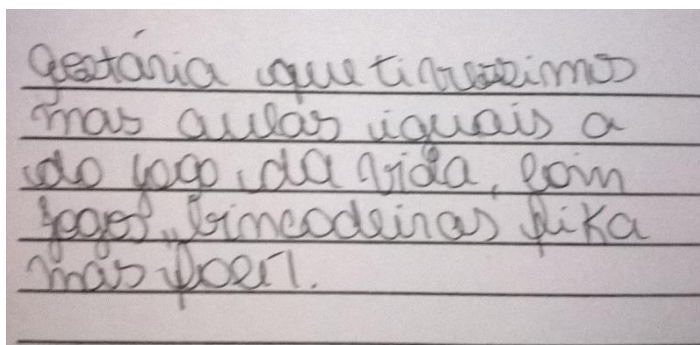 gostária que tivessimos
mas aulas iguais a
do jogo da vida, com
jogos, brincadeiras fika
mas